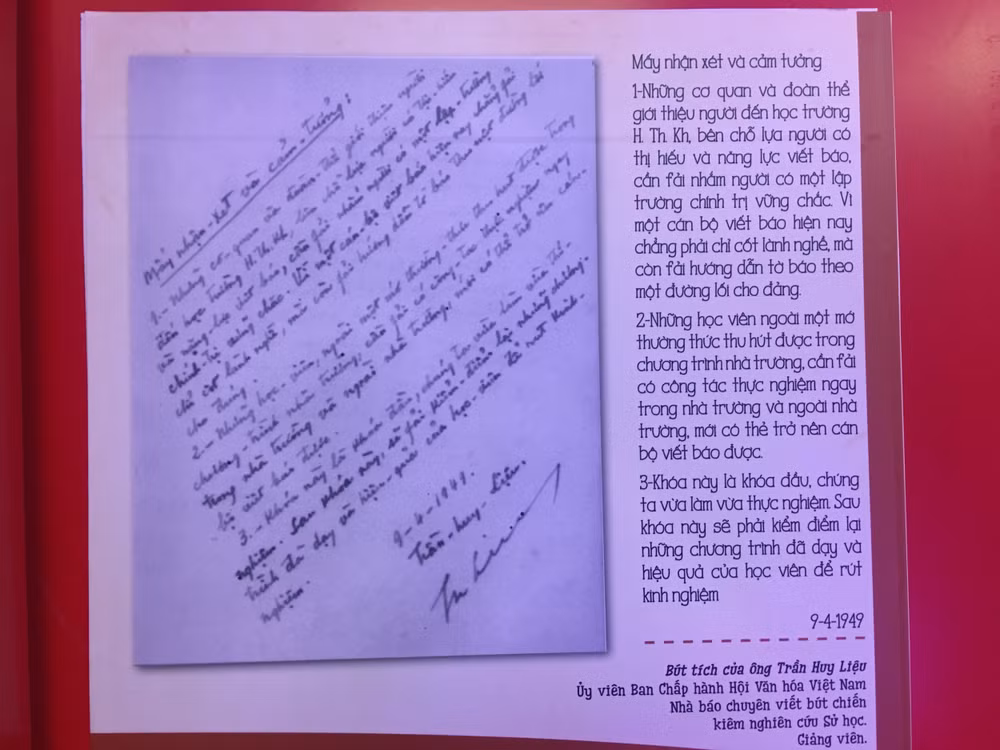 Mấy nhận-xét và cảm-tưởng:
1.- Những cơ-quan và đoàn-thể giới thiệu người
đến học trường H.Th.Kh, bên chỗ lựa người có thị-hiếu
và năng-lực viết báo, cần fải nhắm người có một lập-trường
chính-trị vững chắc. Vì một cán-bộ viết báo hiện nay chẳng fải
chỉ cốt lành nghề, mà còn fải hướng dẫn tờ báo theo một đường lối
cho đúng.
2.- Những học-viên, ngoài một mớ thường-thức thu hút được trong
chương-trình nhà trường, cần fải có công-tác thực-nghiệm ngay
trong nhà trường và ngoài nhà trường, mới có thể trở nên cán-
bộ viết báo được.
3.- Khóa này là khóa đầu, chúng ta vừa làm vừa thí-
nghiệm. Sau khóa này, sẽ fải kiểm-điểm lại những chương-
trình đã dạy và hiệu-quả của học-viên để rút kinh-
nghiệm.
9-4-1949.
Trần-huy-Liệu.
Mấy nhận xét và cảm tưởng
1-Những cơ quan và đoàn thể
giới thiệu người đến học trường
H. Th. Kh, bên chỗ lựa người có
thị hiếu và năng lực viết báo,
cần fải nhắm người có một lập
trường chính trị vững chắc. Vì
một cán bộ viết báo hiện nay
chẳng phải chỉ cốt lành nghề, mà
còn fải hướng dẫn tờ báo theo
một đường lối cho đảng.
2-Những học viên ngoài một mớ
thường thức thu hút được trong
chương trình nhà trường, cần fải
có công tác thực nghiệm ngay
trong nhà trường và ngoài nhà
trường, mới có thể trở nên cán
bộ viết báo được.
3-Khóa này là khóa đầu, chúng
ta vừa làm vừa thực nghiệm. Sau
khóa này sẽ phải kiểm điểm lại
những chương trình đã dạy và
hiệu quả của học viên để rút
kinh nghiệm
9-4-1949
Bút tích của ông Trần Huy Liệu
Ủy viên Ban Chấp hành Hội Văn hóa Việt Nam
Nhà báo chuyên viết bút chiến
kiêm nghiên cứu Sử học.
Giảng viên.